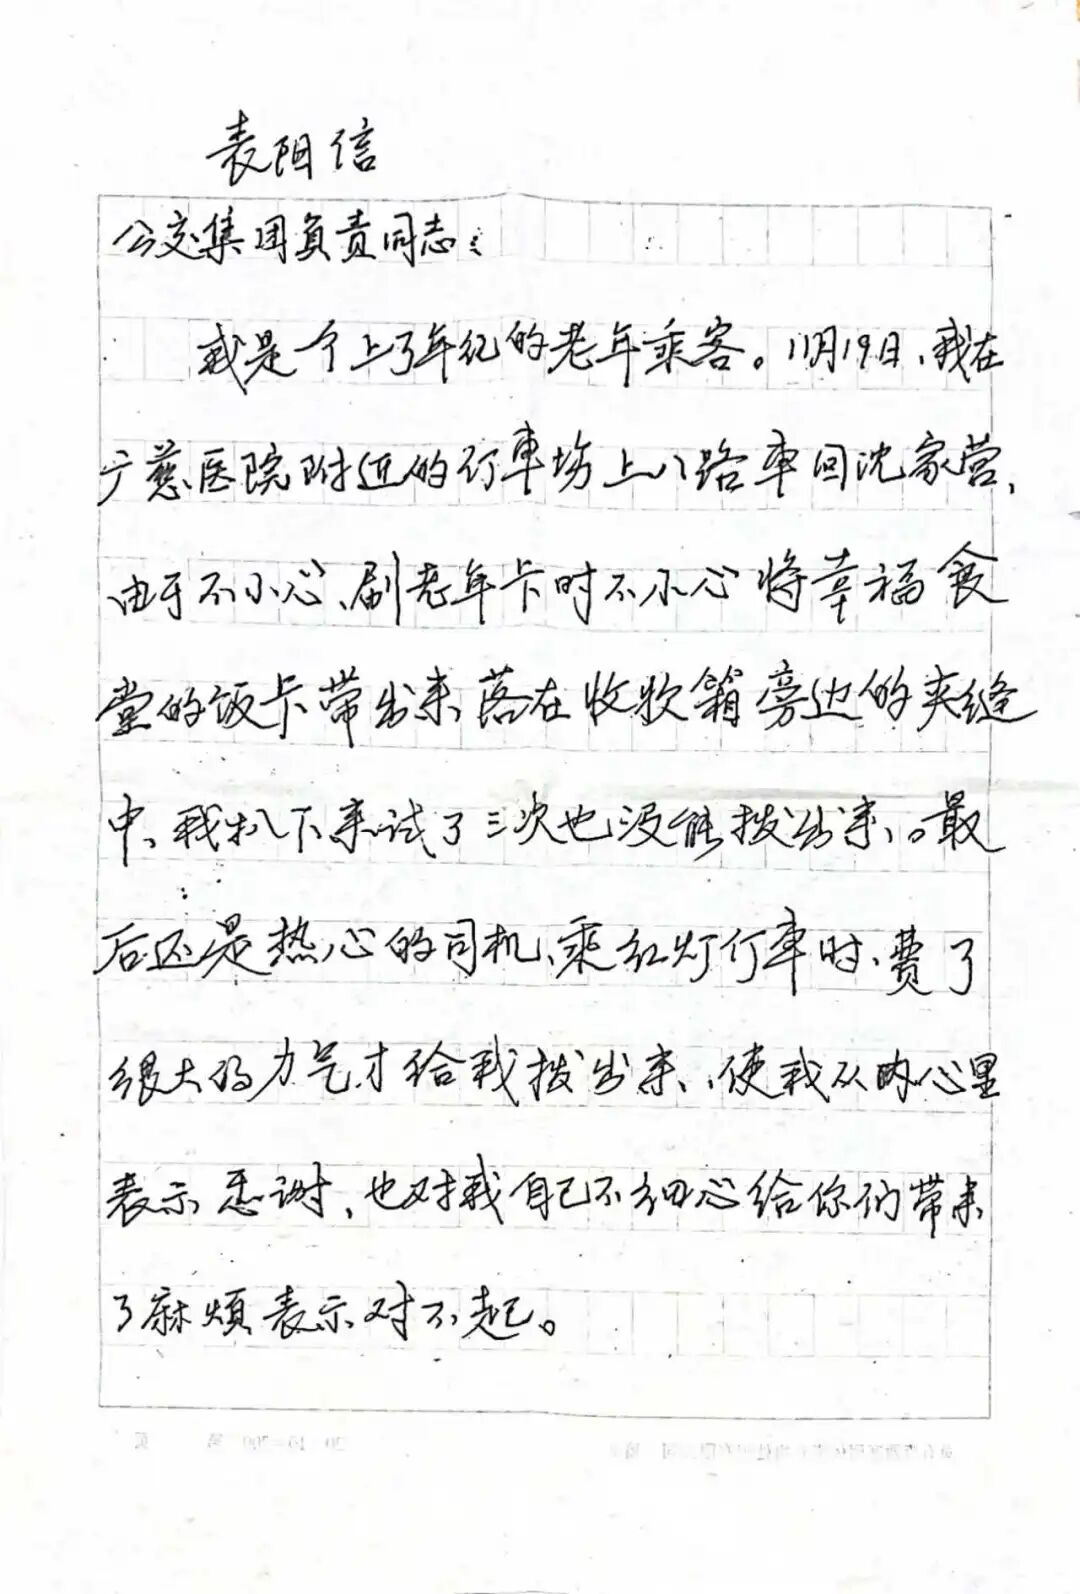 表阳信
公交集团负责同志：
我是个上了年纪的老年乘客。11月19日、我在
广慈医院附近的行車场上八路车回沈家营、
由于不小心、刷老年卡时不小心将幸福食
堂的饭卡带出来落在收钦箱旁边的夹缝
中、我扒下来试了三次也没能拨出来、。最
后还是热心的司机、乘红灯行车时、费了
很大的力气才给我拨出来、使我从内心里
表示感谢、也对我自己不细心给你们带来
了麻烦表示对不起。